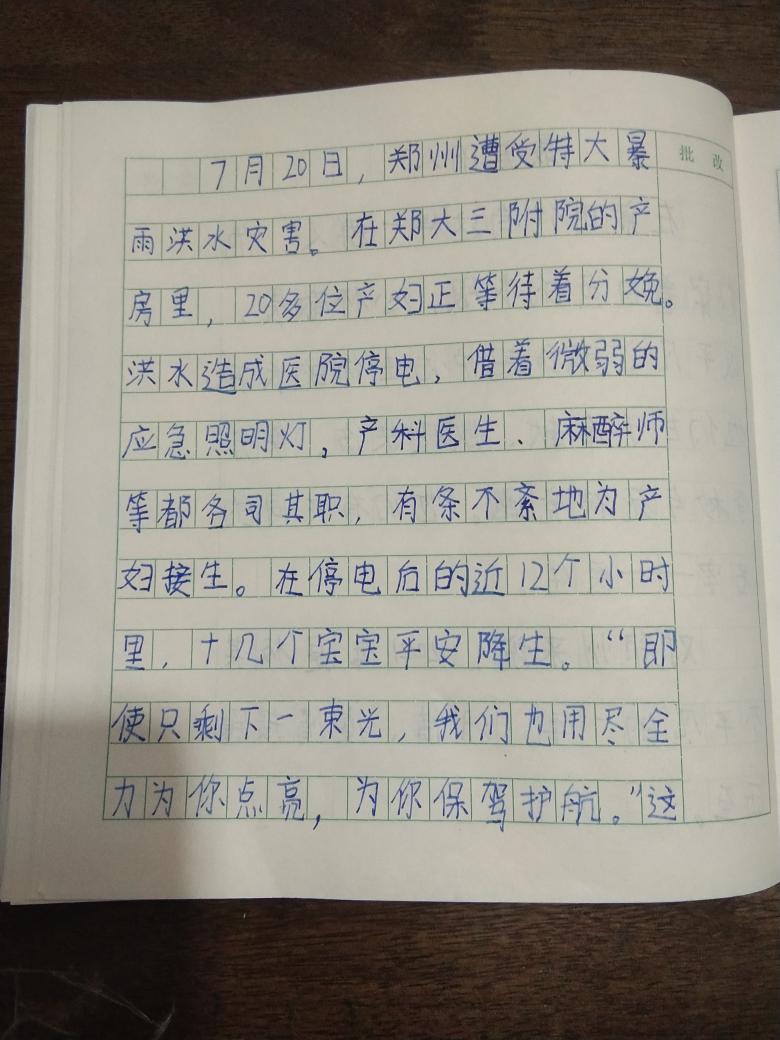 批改
7月20日，郑州遭受特大暴
雨洪水灾害。在郑大三附院的产
房里，20多位产妇正等待着分娩。
洪水造成医院停电，借着微弱的
应急照明灯，产科医生、麻醉师
等都各司其职，有条不紊地为产
妇接生。在停电后的近12个小时
里，十几个宝宝平安降生。“即
使只剩下一束光，我们也用尽全
力为你点亮，为你保驾护航。”这